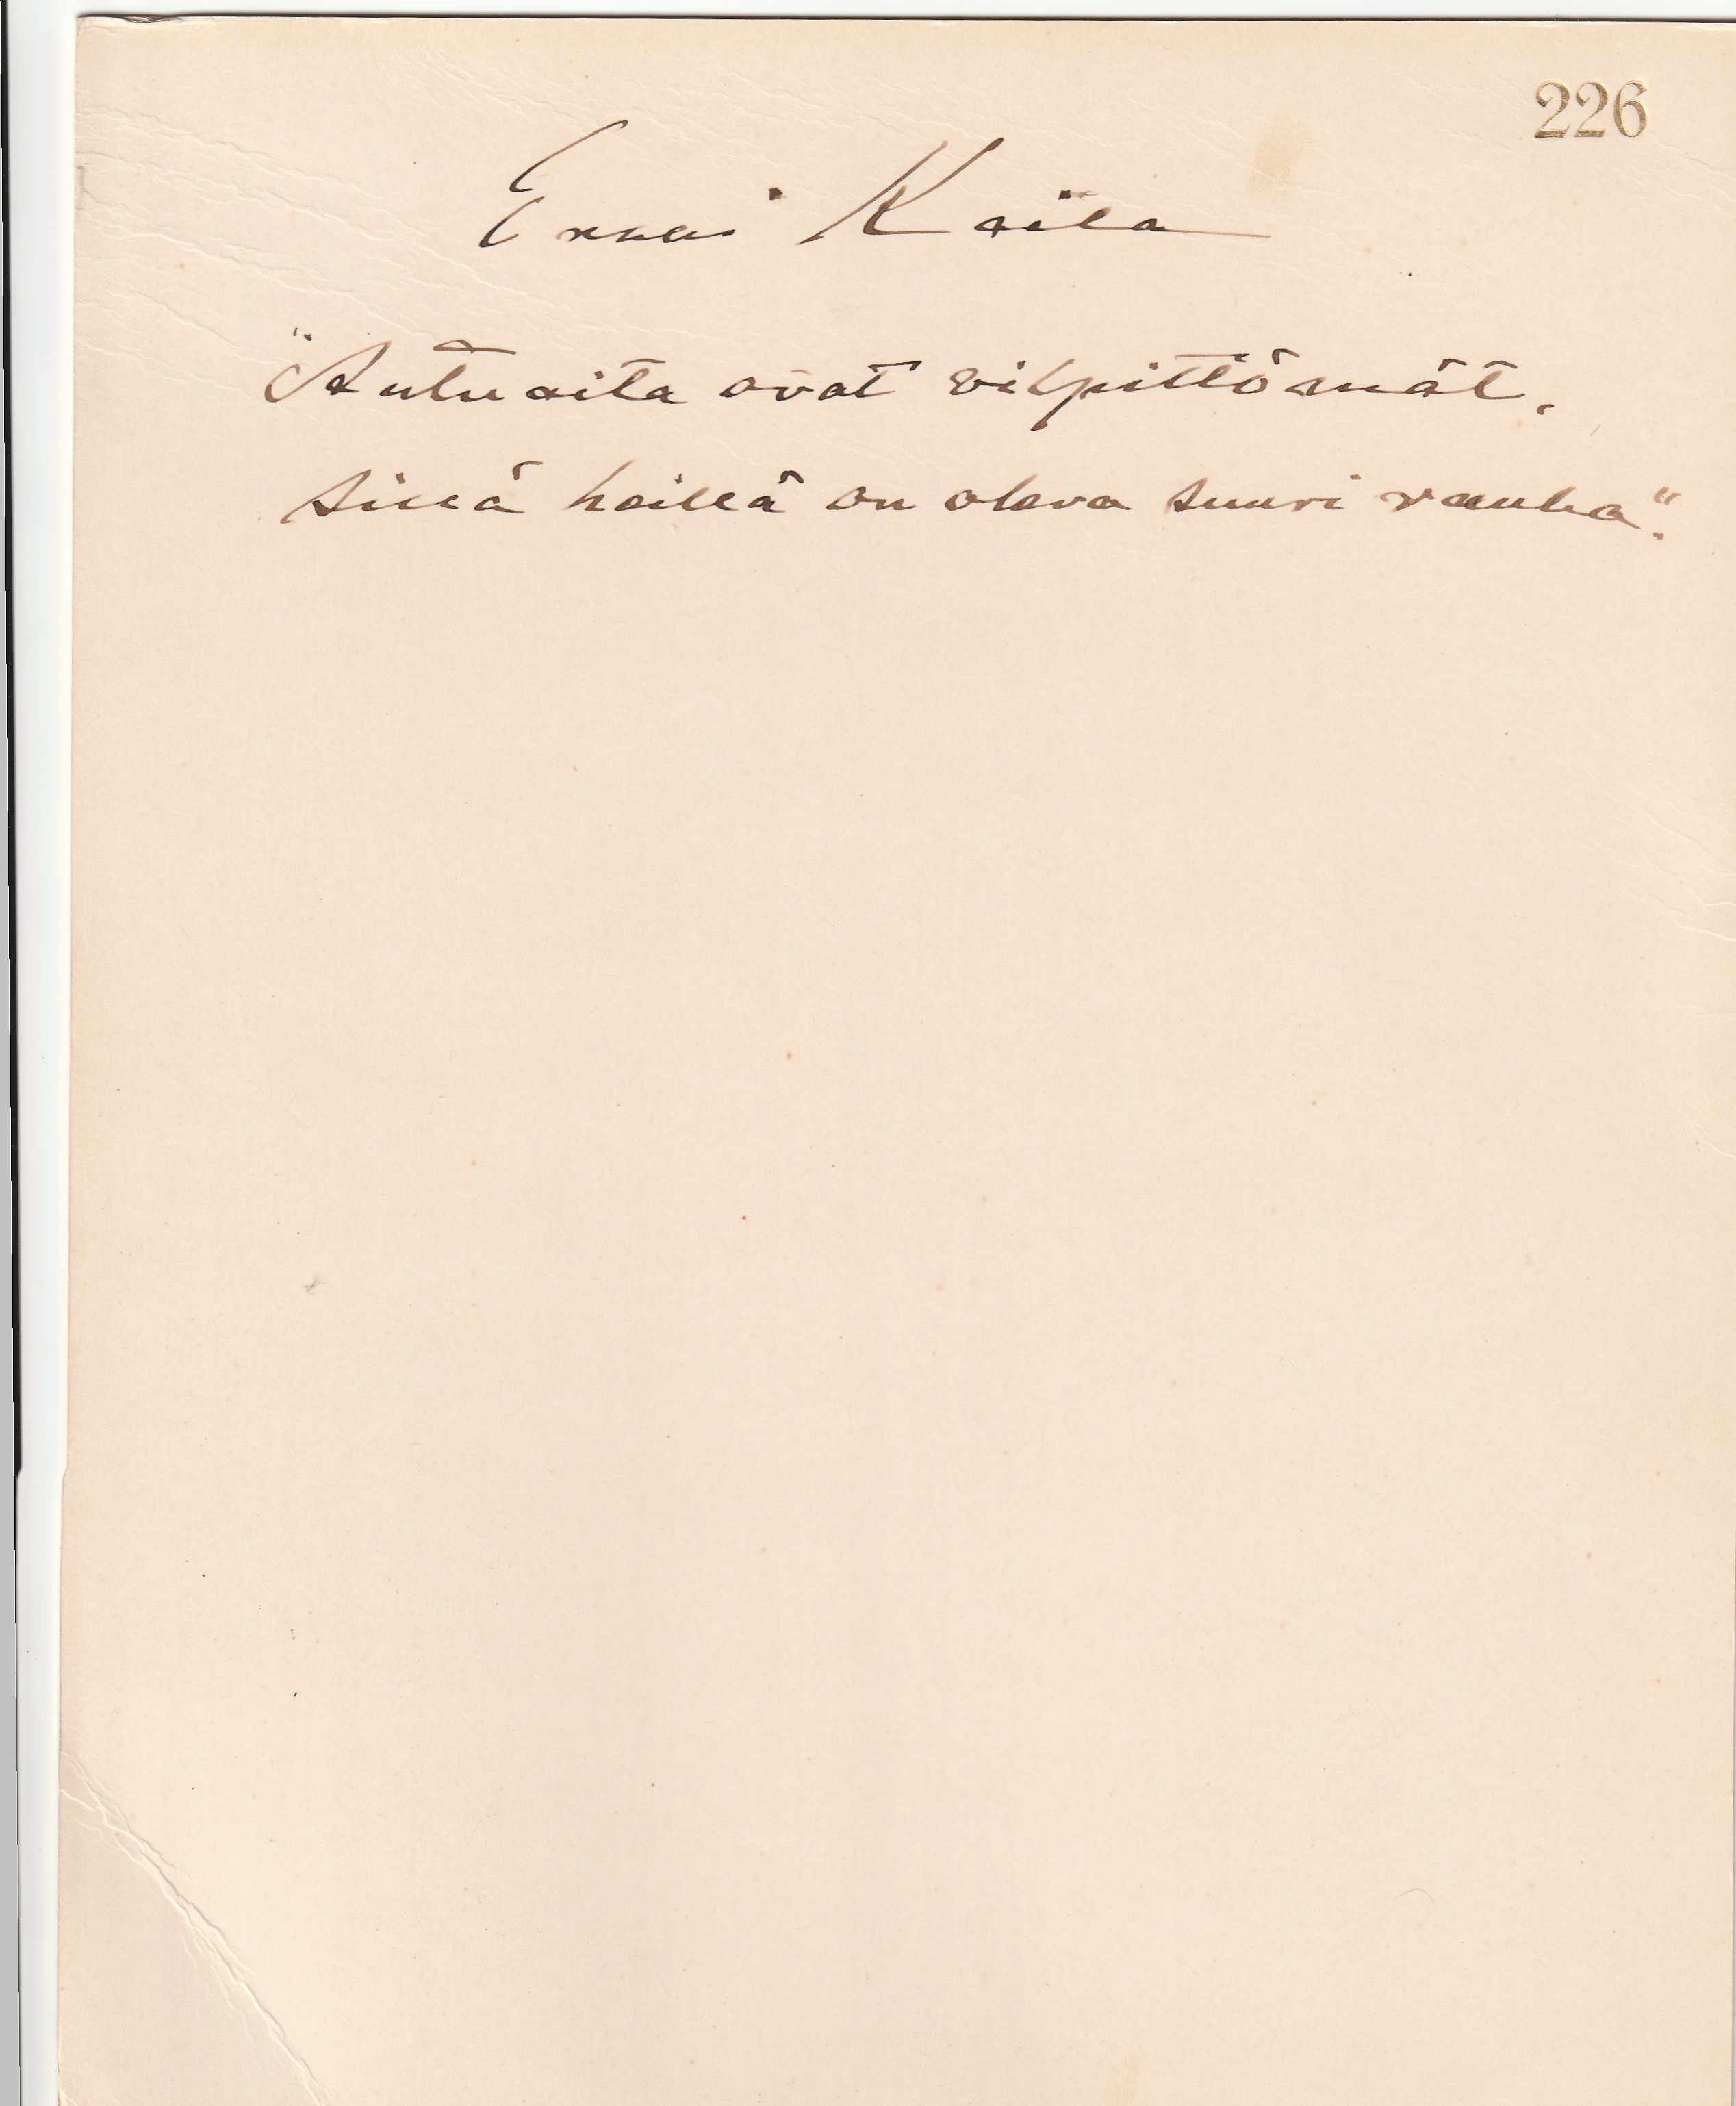 226
Enni Kaila
"Autuaita ovat vilpittömät,
sillä heillä on oleva suuri rauha".